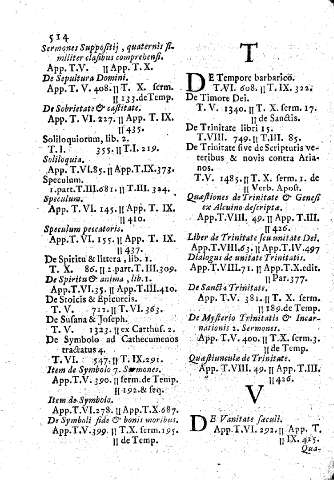 514
Sermones Suppositij, quaternis si-
militer classibus comprehensi.
App. T. V. || App. T. X.
De Sepultura Domini.
App. T. V. 408. || T. X. serm.
|| 133. de Temp.
De Sobrietate & castitate.
App. T. VI. 227. || App. T. IX.
|| 435.
Soliloquiorum, lib. 2.
T. I. 355. || T. I. 219.
Soliloquia.
App. T.VI. 85. || App.T.IX.373.
Speculum.
1. part.T.III.681. || T. III. 324.
Speculum.
App. T. VI. 145. || App. T. IX.
|| 410.
Speculum peccatoris.
App. T. VI. 155. || App. T. IX.
|| 437.
De Spiritu & littera, lib. 1.
T. X. 86. || 2. part.T.III.309.
De Spiritu & anima, lib. 1.
App.T.VI.35. || App.T.III.410.
De Stoicis & Epicureis.
T. V. 727. || T.VI.363.
De Susana & Joseph.
T. V. 1323. || ex Carthus. 2.
De Symbolo ad Cathecumenos
tractatus 4.
T. VI. 547. || T.IX.291.
Item de Symbolo 7. Sermones.
App.T.V. 390. || serm.de Temp.
|| 192. & seq.
Item de Symbolo.
App.T.VI.278. || App.T.X.687.
De Symboli fide & bonis moribus.
App.T.V.399. || T.X. serm.195.
|| de Temp.
T
DE Tempore barbarico.
T. VI. 608. || T. IX. 322.
De Timore Dei.
T. V. 1340. || T. X. serm. 17.
|| de Sanctis.
De Trinitate libri 15.
T.VIII. 749. || T.III. 85.
De Trinitate sive de Scripturis ve-
teribus & novis contra Aria-
nos.
T.V. 1485. || T. X. serm. 1. de
|| Verb. Apost.
Quæstiones de Trinitate & Genesi
ex Alcuino descripta.
App. T.VIII. 49. || App. T.III.
|| 426.
Liber de Trinitate seu unitate Dei.
App.T.VIII.63. || App.T.IV.497
Dialogus de unitate Trinitatis.
App.T.VIII.71. || App.T.X.edit.
|| Par.377.
De Sancta Trinitate.
App.T.V. 381. || T. X. serm.
|| 189.de Temp.
De Mysterio Trinitatis & Incar-
nationis 2. Sermones.
App. T.V. 400. || T. X. serm.3.
|| de Temp.
Quæstiunculæ de Trinitate.
App. T.VIII. 49. || App. T.III.
|| 426.
V
DE Vanitate sæculi.
App.T.VI. 292. || App. T.
|| IX. 425.
Qua-